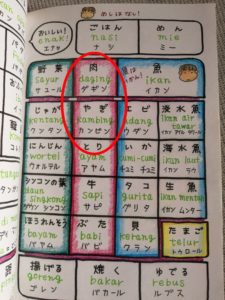 めしはなし!
おいしい!
enak!
エナッ
ごはん
nasi
ナシ
めん
mie
ミー
野菜
sayur
サユール
肉
daging
ダギン
魚
ikan
イカン
じゃが
kentang
クンタン
やぎ
kambing
カンビン
エビ
udang
ウダン
淡水魚
ikan air
tawar
イカン アイル タワール
にんじん
wortel
ウォルテル
とり
ayam
アヤム
いか
cumi-cumi
チュミ チュミ
海水魚
ikan laut
イカン ラウト
daun
singkong
牛
sapi
サピ
タコ
gurita
グリタ
ほうれんそう
bayam
バヤム
ぶた
babi
バビ
貝
kerang
クラン
たまご
telur
トゥロール
揚げる
goreng
ゴレン
焼く
bakar
バカール
ゆでる
rebus
ルブス